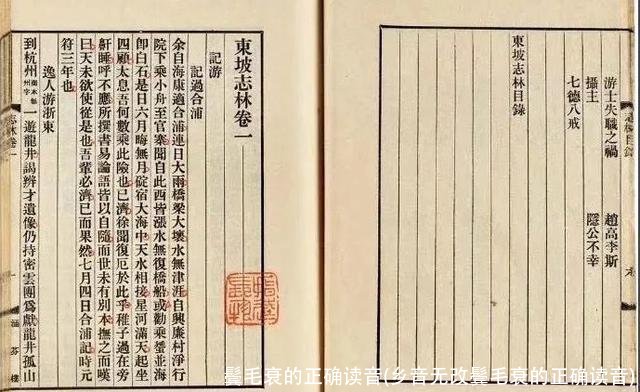 志林目錄
游士失職之禍 趙高李斯
攝主 隱公不幸
七德八戒
東坡志林目錄
東坡志林卷一
記游
記過合浦
余自海康適合浦連日大雨橋梁大壞水無津涯自興廉村淨行
院下乘小舟至官寨聞自此西皆漲水無復橋船或勸乘蜑並海
即白石是日六月晦無月碇宿大海中天水相接星河滿天起坐
四顧太息吾何數乘此險也已濟徐聞復厄於此乎稚子過在旁
鼾睡呼不應所撰書易論語皆以自隨而世未有別本撫之而嘆
曰天未欲使從是也吾輩必濟已而果然七月四日合浦記時元
符三年也
逸人游浙東
到杭州一遊龍井謁辨才遺像仍持密雲團為獻龍井孤山
志林卷一
涵芬樓
鬓毛衰的正确读音(乡音无改鬓毛衰的正确读音)